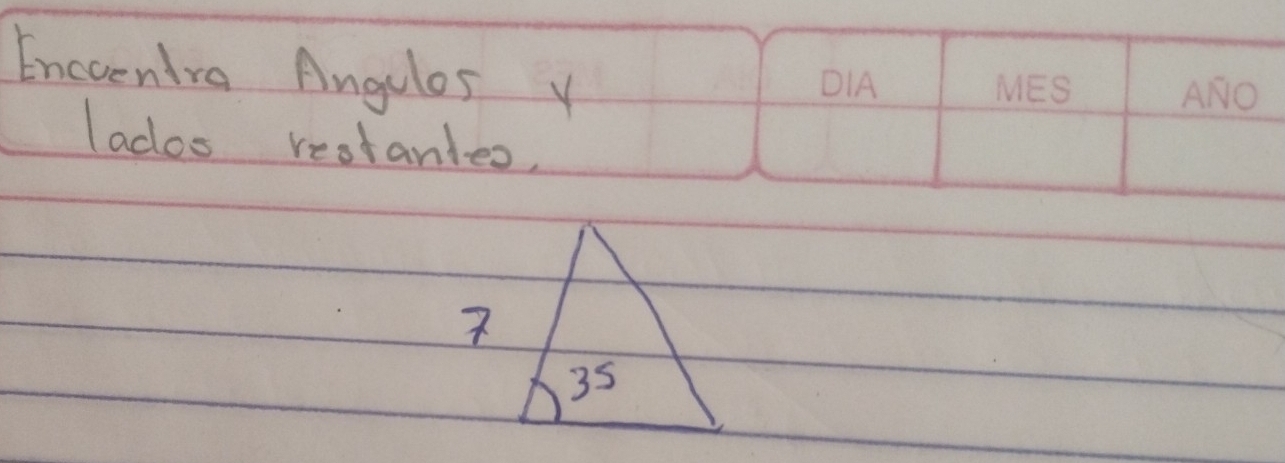 Encuentra Angulos y
lados restantes.
DIA MES AÑO
7
35